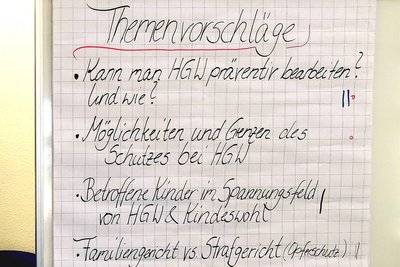 Themenvorschläge
• Kann man HGW präventiv bearbeiten?
Und wie?
• Möglichkeiten und Grenzen des
Schutzes bei HGW
• Betroffene Kinder im Spannungsfeld
von HGW & Kindeswohl
• Familiengericht vs. Strafgericht (Opferschutz)